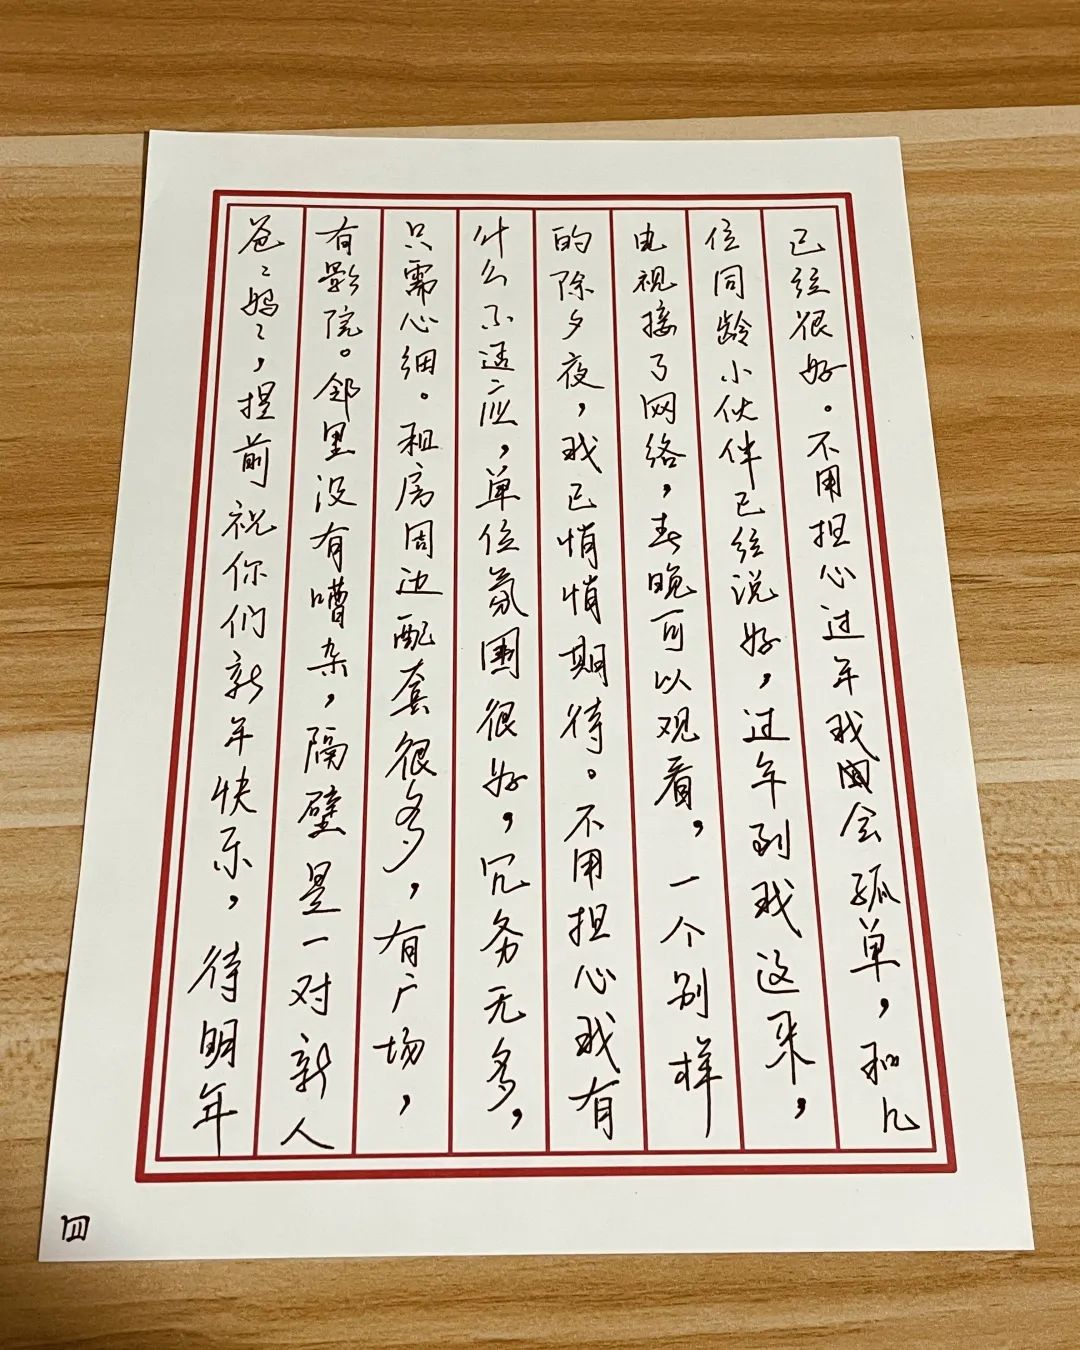 已经很好。不用担心过年我会孤单，和几
位同龄小伙伴已经说好，过年到我这来，
电视接了网络，春晚可以观看，一个别样
的除夕夜，我已悄悄期待。不用担心我有
什么不适应，单位氛围很好，冗务无多，
只需心细。租房周边配套很多，有广场，
有影院。邻里没有嘈杂，隔壁是一对新人
爸〻妈〻，提前祝你们新年快乐，待明年
四